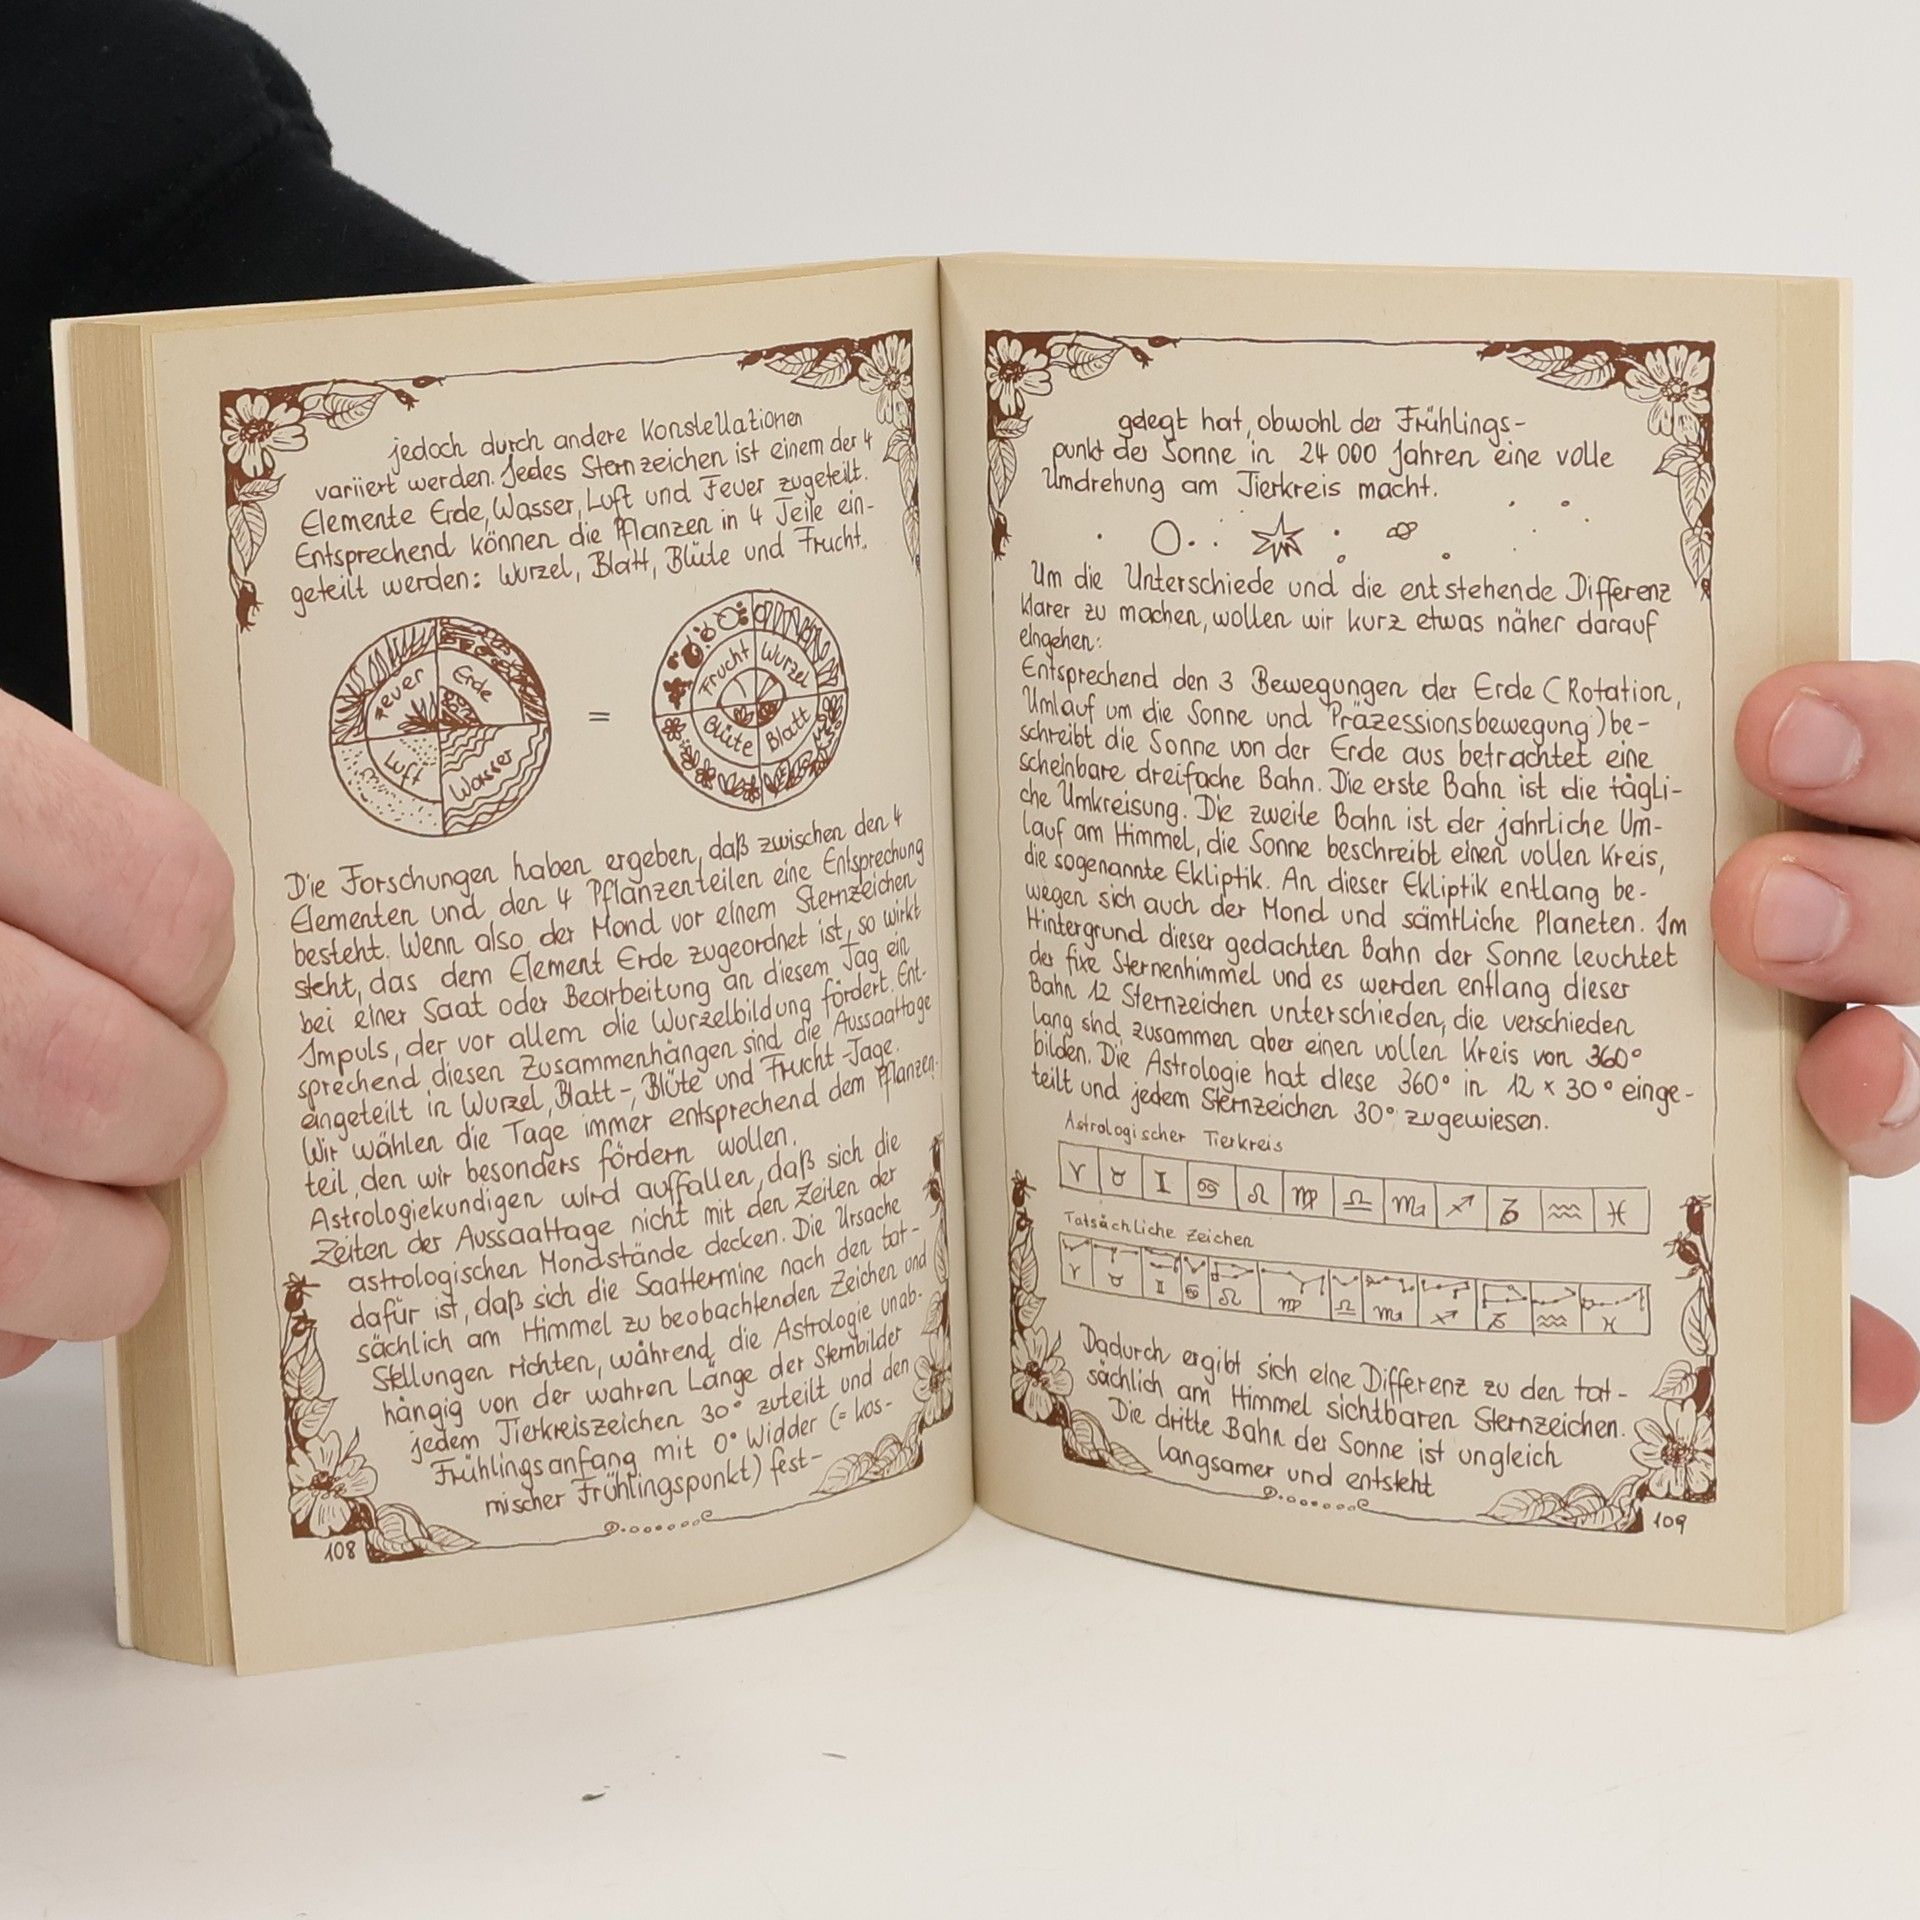 jedoch durch andere Konstellationen
variiert werden. Jedes Sternzeichen ist einem der 4
Elemente Erde, Wasser, Luft und Feuer zugeteilt.
Entsprechend können die Pflanzen in 4 Teile ein-
geteilt werden: Wurzel, Blatt, Blüte und Frucht.
Feuer
Erde
Luft
Wasser
=
Frucht
Wurzel
Blüte
Blatt
Die Forschungen haben ergeben, daß zwischen den 4
Elementen und den 4 Pflanzenteilen eine Entsprechung
besteht. Wenn also der Mond vor einem Sternzeichen
steht, das dem Element Erde zugeordnet ist, so wirkt
bei einer Saat oder Bearbeitung an diesem Tag ein
Impuls, der vor allem die Wurzelbildung fördert. Ent-
sprechend diesen Zusammenhängen sind die Aussaattage
eingeteilt in Wurzel, Blatt-, Blüte und Frucht-Tage.
Wir wählen die Tage immer entsprechend dem Pflanzen-
teil, den wir besonders fördern wollen.
Astrologiekundigen wird auffallen, daß sich die
Zeiten der Aussaattage nicht mit den Zeiten der
astrologischen Mondstände decken. Die Ursache
dafür ist, daß sich die Saattermine nach den tat-
sächlich am Himmel zu beobachtenden Zeichen und
Stellungen richten, während die Astrologie unab-
hängig von der wahren Länge der Sternbilder
jedem Tierkreiszeichen 30° zuteilt und den
Frühlingsanfang mit 0° Widder (= kos-
mischer Frühlingspunkt) fest-
108
gelegt hat, obwohl der Frühlings-
punkt der Sonne in 24 000 Jahren eine volle
Umdrehung am Tierkreis macht.
Um die Unterschiede und die entstehende Differenz
klarer zu machen, wollen wir kurz etwas näher darauf
eingehen:
Entsprechend den 3 Bewegungen der Erde (Rotation,
Umlauf um die Sonne und Präzessionsbewegung) be-
schreibt die Sonne von der Erde aus betrachtet eine
scheinbare dreifache Bahn. Die erste Bahn ist die tägli-
che Umkreisung. Die zweite Bahn ist der jährliche Um-
lauf am Himmel, die Sonne beschreibt einen vollen Kreis,
die sogenannte Ekliptik. An dieser Ekliptik entlang be-
wegen sich auch der Mond und sämtliche Planeten. Im
Hintergrund dieser gedachten Bahn der Sonne leuchtet
der fixe Sternenhimmel und es werden entlang dieser
Bahn 12 Sternzeichen unterschieden, die verschieden
lang sind, zusammen aber einen vollen Kreis von 360°
bilden. Die Astrologie hat diese 360° in 12 x 30° einge-
teilt und jedem Sternzeichen 30° zugewiesen.
Astrologischer Tierkreis
♈ ♉ ♊ ♋ ♌ ♍ ♎ ♏ ♐ ♑ ♒ ♓
Tatsächliche Zeichen
♈ ♉ ♊ ♋ ♌ ♍ ♎ ♏ ♐ ♑ ♒ ♓
Dadurch ergibt sich eine Differenz zu den tat-
sächlich am Himmel sichtbaren Sternzeichen.
Die dritte Bahn der Sonne ist ungleich
langsamer und entsteht
109